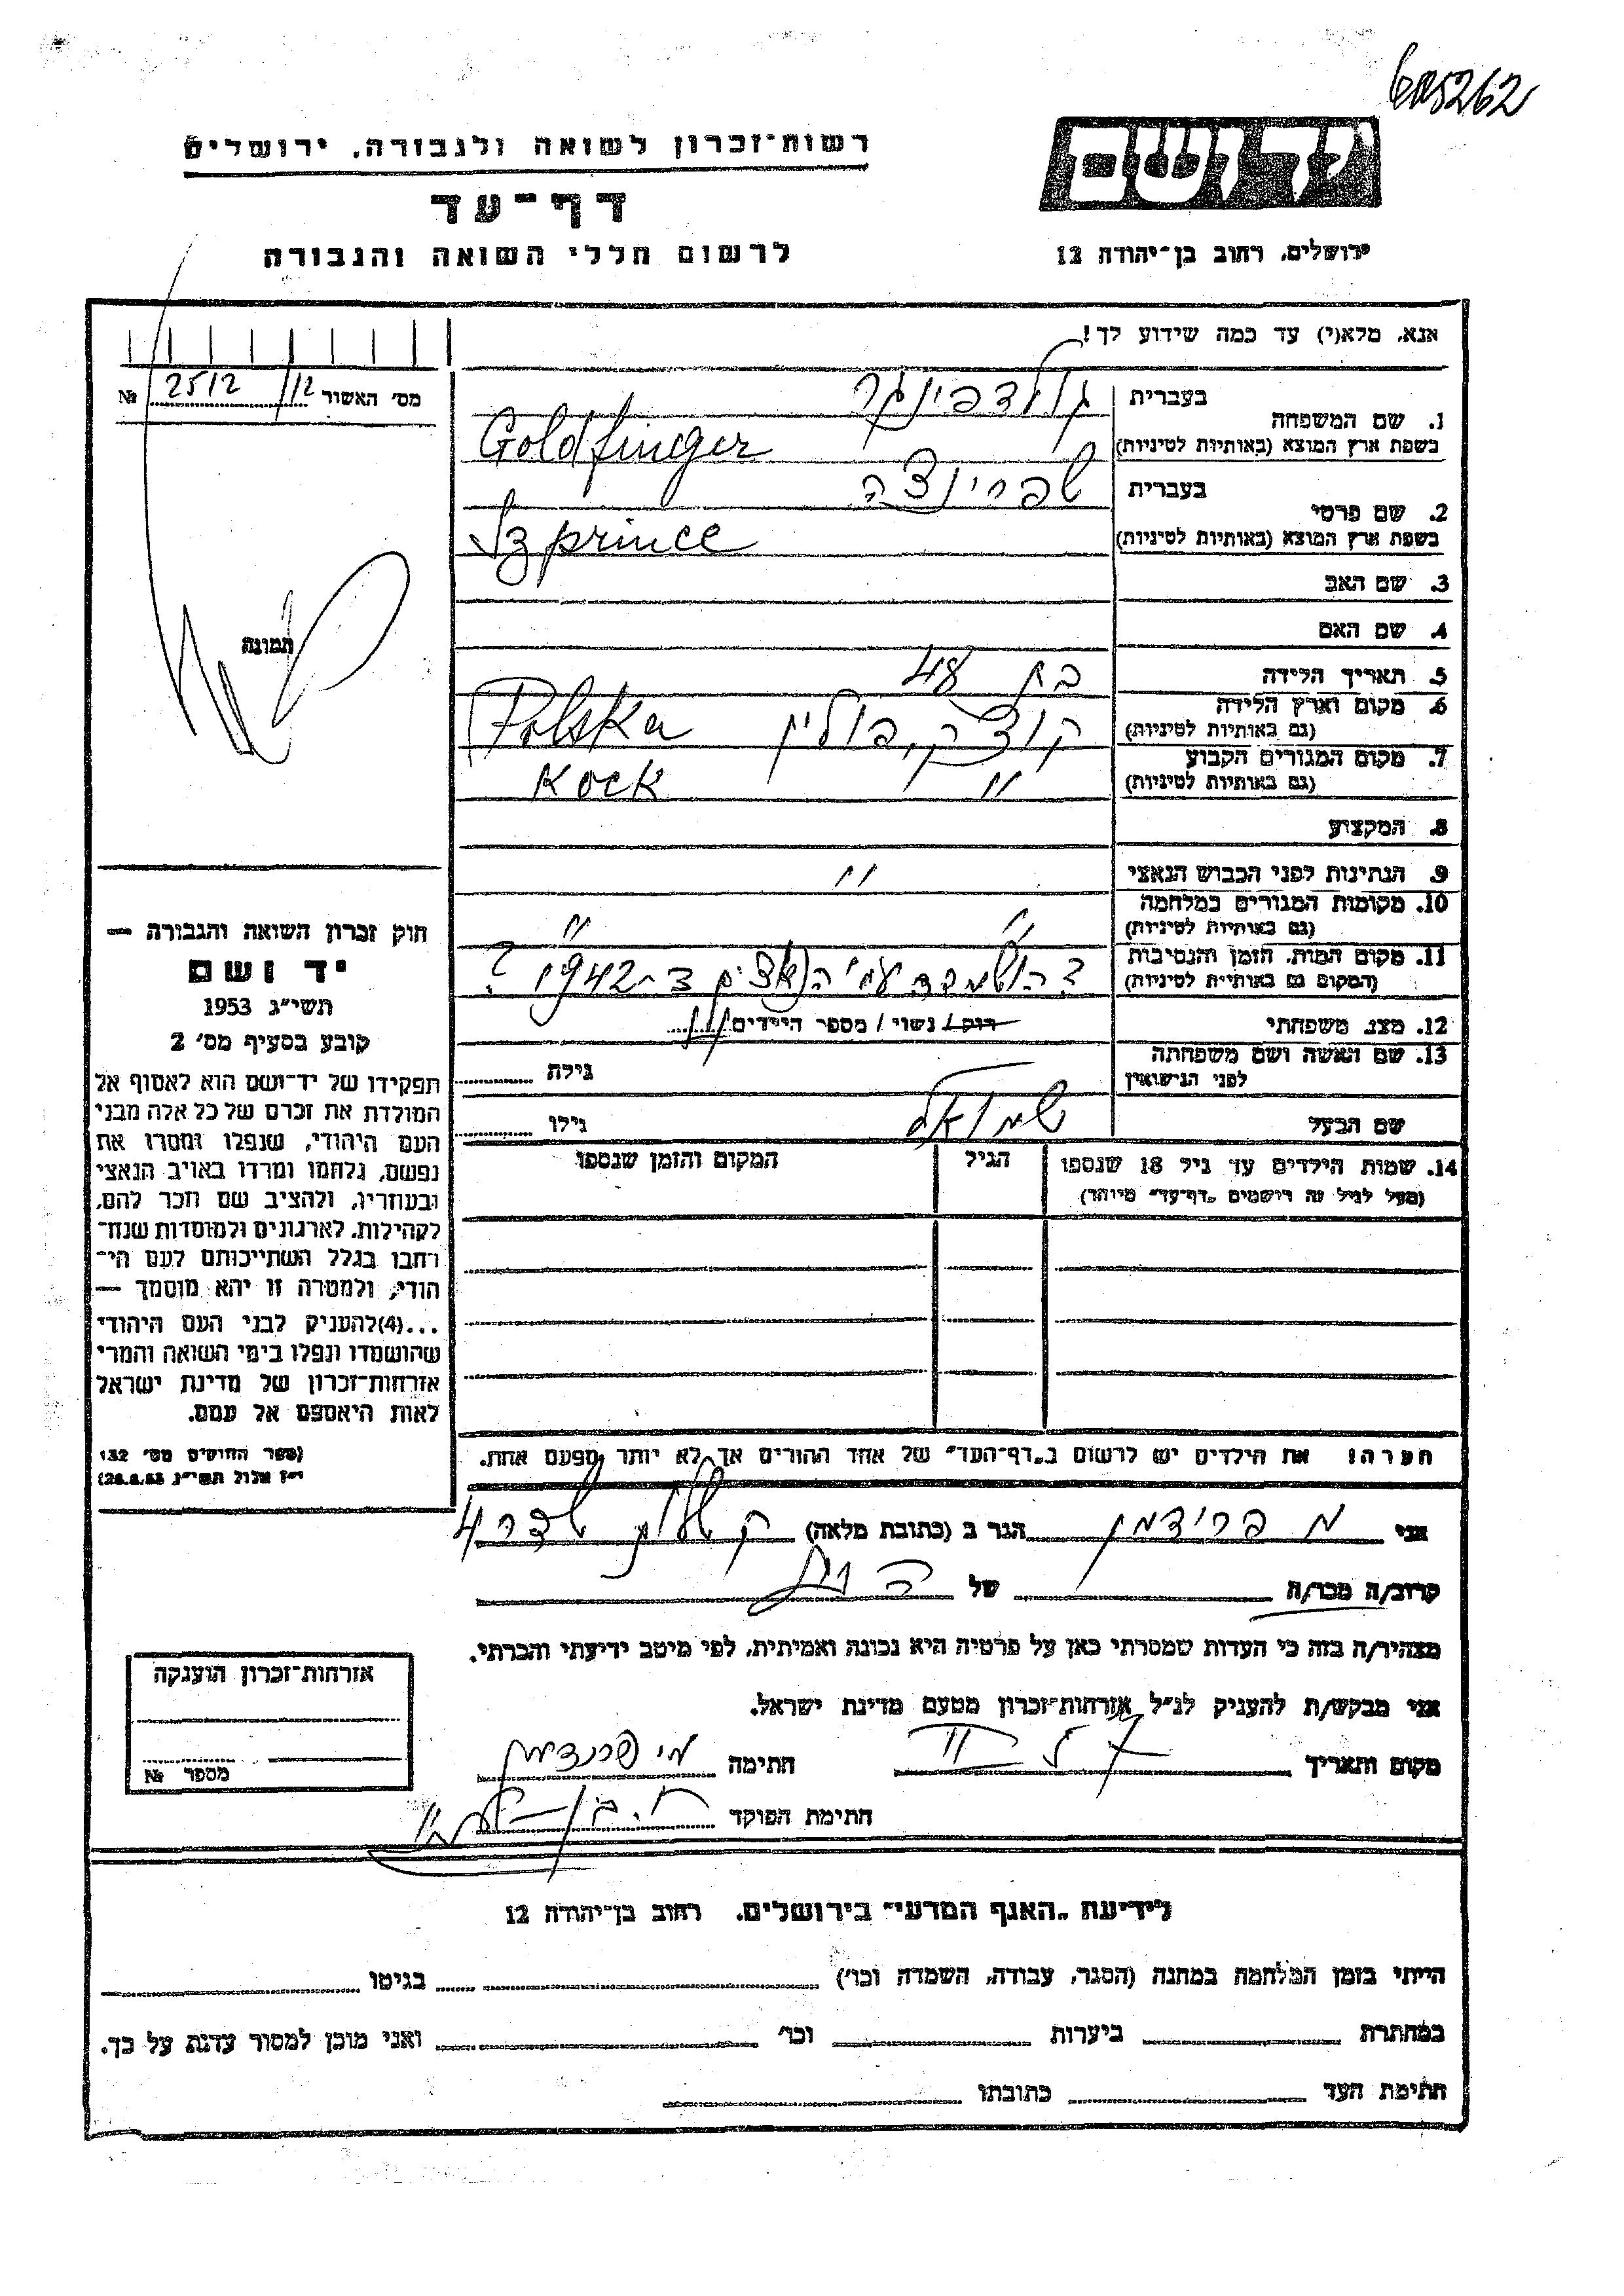 605262
יד ושם
ירושלים, רחוב בן־יהודה 12
רשות־זכרון לשואה ולגבורה, ירושלים
דף־עד
לרשום חללי השואה והגבורה
אנא, מלא(י) עד כמה שידוע לך!
מס׳ האשור 12/ 2512 №
תמונה
1. שם המשפחה
בעברית גולדפינגר
בשפת ארץ המוצא (באותיות לטיניות) Goldfinger
2. שם פרטי
בעברית שפרינצה
בשפת ארץ המוצא (באותיות לטיניות) Szprince
3. שם האב
4. שם האם
5. תאריך הלידה בת 48
6. מקום וארץ הלידה קוצק, פולין Polska
(גם באותיות לטיניות)
7. מקום המגורים הקבוע " Kock
(גם באותיות לטיניות)
8. המקצוע
9. הנתינות לפני הכבוש הנאצי "
10. מקומות המגורים במלחמה " "
(גם באותיות לטיניות)
11. מקום המות, הזמן והנסיבות הושמדה ע״י הנאצים ב־1942 ?
(המקום גם באותיות לטיניות)
12. מצב משפחתי רוק / נשוי / מספר הילדים
13. שם האשה ושם משפחתה
לפני הנישואין
גילה
שם הבעל שמואל גילו
14. שמות הילדים עד גיל 18 שנספו הגיל המקום והזמן שנספו
(מעל לגיל זה רושמים „דף־עד״ מיוחד)
הערה: את הילדים יש לרשום ב„דף־העד״ של אחד ההורים אך לא יותר מפעם אחת.
חוק זכרון השואה והגבורה —
יד ושם
תשי״ג 1953
קובע בסעיף מס׳ 2
תפקידו של יד־ושם הוא לאסוף אל
המולדת את זכרם של כל אלה מבני
העם היהודי, שנפלו ומסרו את
נפשם, נלחמו ומרדו באויב הנאצי
ובעוזריו, ולהציב שם וזכר להם,
לקהילות, לארגונים ולמוסדות שנח־
רבו בגלל השתייכותם לעם הי־
הודי, ולמטרה זו יהא מוסמך —
...(4) להעניק לבני העם היהודי
שהושמדו ונפלו בימי השואה והמרי
אזרחות־זכרון של מדינת ישראל
לאות היאספם אל עמם.
(ספר החוקים מס׳ 132
י״ז אלול תשי״ג 28.8.53)
אני מ פרידמן הגר ב (כתובת מלאה) 4
קרוב/ה מכר/ה של
מצהיר/ה בזה כי העדות שמסרתי כאן על פרטיה היא נכונה ואמיתית, לפי מיטב ידיעתי והכרתי.
אני מבקש/ת להעניק לנ״ל אזרחות־זכרון מטעם מדינת ישראל.
מקום ותאריך חתימה מ פרידמן
חתימת הפוקד
אזרחות־זכרון הוענקה
מספר №
לידיעת „האגף המדעי״ בירושלים, רחוב בן־יהודה 12
הייתי בזמן המלחמה במחנה (הסגר, עבודה, השמדה וכו׳) בגיטו
במחתרת ביערות וכו׳ ואני מוכן למסור עדות על כך.
חתימת העד כתובתו